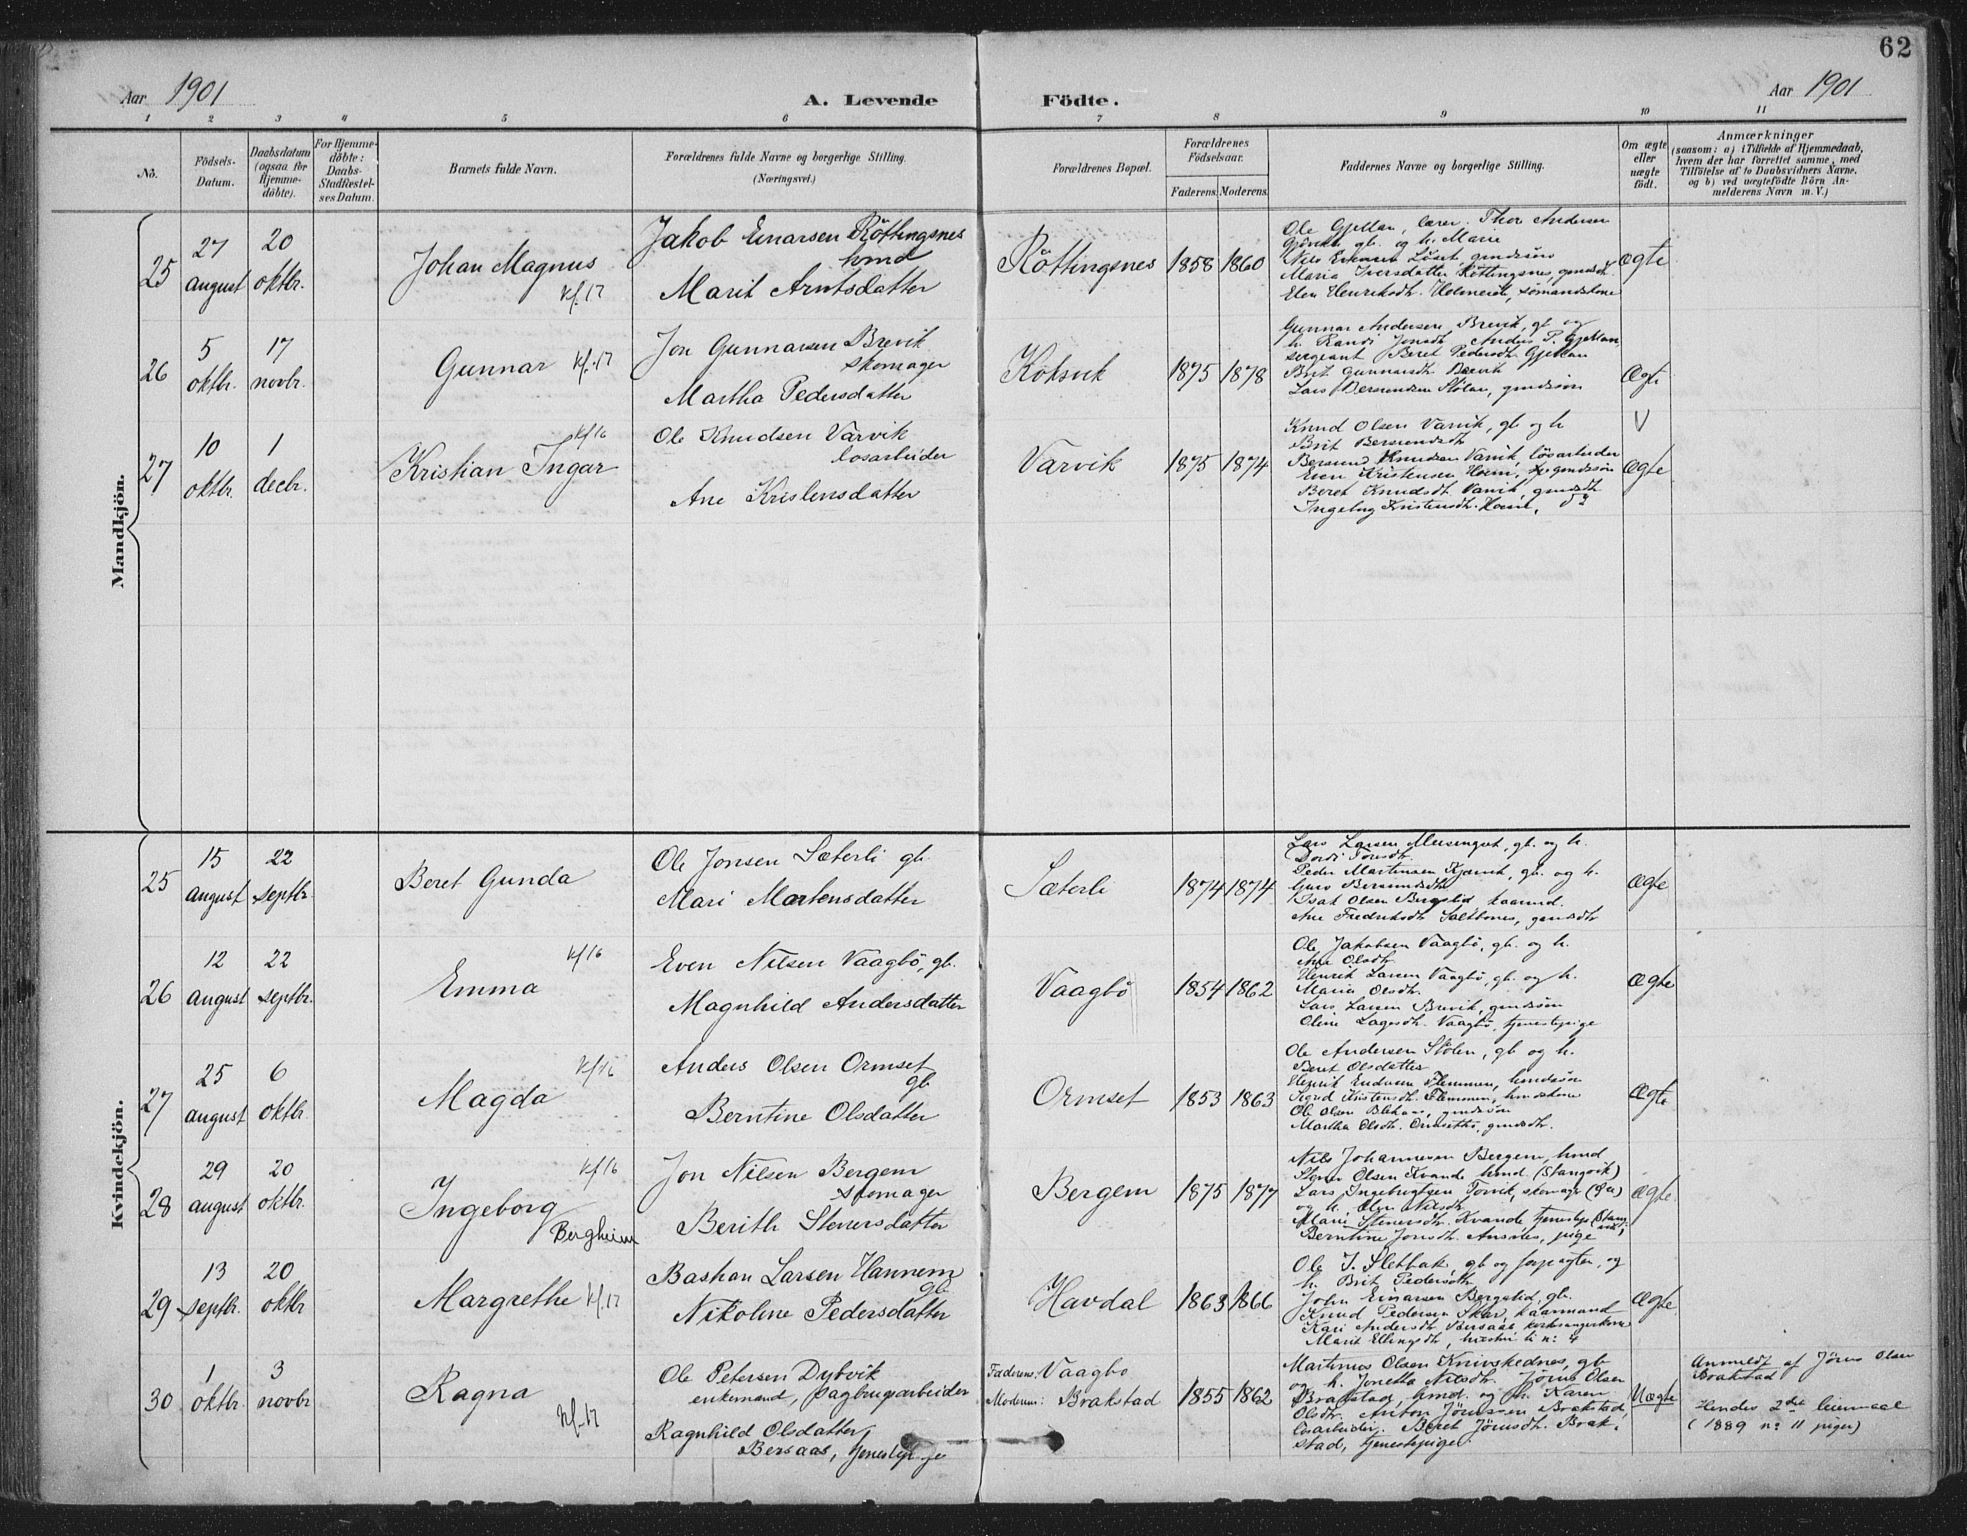 62
Aar 1901
A. Levende Födte.
Aar 1901
1 2 3 4 5 6 7 8 9 10 11
No.
Födsels-Datum.
Daabsdatum (ogsaa for Hjemmedöbte).
For Hjemmedöbte: Daabs-Stadfæstelses Datum.
Barnets fulde Navn.
Forældrenes fulde Navne og borgerlige Stilling. (Næringsvei.)
Forældrenes Bopæl.
Forældrenes Födselsaar.
Faderens. Moderens.
Faddernes Navne og borgerlige Stilling.
Om ægte eller uægte födt.
Anmærkninger
(saasom: a) i Tilfælde af Hjemmedaab, hvem der har forrettet samme, med Tilföielse af to Daabsvidners Navne, og b) ved uægtefödte Börn Anmelderens Navn m. V.)
Mandkjön.
25
27 august
20 oktbr.
Johan Magnus
kf. 17
Jakob Einarsen Röttingsnes
hmd
Marit Arntsdatter
Röttingsnes
1858 1860
Ole Gjeldan, lærer. Thor Andersen
gb. og h. Marie
Maria Iversdatter Röttingsnes, gmdsdt.
Elen Henriksdtr. sömandskone
ægte
26
5 oktbr.
17 novbr.
Gunnar kf. 17
Jon Gunnarsen Brevik
skomager
Martha Pedersdatter
Koksvik
1875 1878
Gunnar Andersen Brevik, gb og
h. Randi Jonsdt. Anders P.
sergeant, Beret Pedersdt.
Brit Gunnarsdt. Brevik
Lars Bersvendsen Stölan, gmdssön
Ægte
27
10 oktbr.
1 decbr.
kf 16
Kristian Ingar
Ole Knudsen Varvik
losarbeider
Ane Kristensdatter
Varvik
1875 1874
Knud Olsen Varvik, gb og h
Brit Bersvendsdt.
Bersvend Knudsen Varvik, lösarbeider
Even Kristensen Hoem, gmdssön
Beret Knudsdt. Varvik, gmdsdt.
Ingeborg Kristensdt. Hoem, do
V
Ægte
Kvindekjön.
25
15 august
22 septbr.
Beret Gunda
Ole Jonsen Sæterli gb.
Mari Martensdatter
Sæterli
1874 1874
Lars Larsen gb. og h.
Peder Martinsen gb. og h.
Guro Bersvendsdt.
Isak Olsen kaarmd.
Ane Fredriksdt. gmdsdtr
Ægte
26
12 august
22 septbr.
kf 16
Emma
Even Nilsen Vaagbö, gb.
Magnhild Andersdatter
Vaagbö
1854 1862
Ole Jakobsen Vaagbö, gb. og h.
Ane Olsdt.
Henrik Larsen Vaagbö, gb. og h.
Maria Olsdt.
Lars Larsen Brevik, gmdssön
Oline Larsdt. Vaagbö, tjenestepige
Ægte
27
25 august
6 oktbr.
kf 16
Magda
Anders Olsen Ormset
gb
Berntine Olsdatter
Ormset
1853 1863
Ole Andersen Stölen, gb og h.
Beret Olsdatter
Henrik Endresen Flemmen, hmdssön
Sigrid Kristensdt. Flemmen, hmdskone
Ole Olsen gmdssön
Martha Olsdt. gmdsdt.
Ægte
28
29 august
20 oktbr.
kf 16
Ingeborg
Bergheim
Jon Nilsen Bergem
skomager
Berith Stenersdatter
Bergem
1875 1877
Nils Johannesen Bergem, hmd
Stener Olsen Kvande hmd (Stangvik)
Lars Ingebrigtsen Torvik, skomager
og h. Nilsdt.
Marie Stenersdt. Kvande tjenestep. (Stangvik)
Berntine Jonsdt. pige
Ægte
29
13 septbr.
20 oktbr
Margrethe kf. 17
Bastian Larsen Hannem
gb.
Nikoline Pedersdatter
Havdal
1863 1866
Ole J. Sletbak, gb og forpagter, og
h. Brit Pedersdt.
John Einarsen Bergslid, gb.
Knud Pedersen Skar, kaarmand
Kari Andersdt. Bersaas kirkesangerkone
Marit Ellingsdt.
Ægte
30
1 oktbr.
3 novbr
Ragna
kf. 17
Ole Petersen Dybvik
enkemand, sagbrugsarbeider
Ragnhild Olsdatter
Bersaas, tjenestepige
Faderens: Vaagbo
Moderens: Brakstad
1855 1862
Martinus Olsen Knivskednes, gb
og h. Jonetta Nilsdt. Jörus Olsen
Brakstad, hmd. og h. Karen
Olsdtr. Anton Jörussen Brakstad,
losarbeider. Beret Jörusdt. Brak-
stad, tjenestepige.
Uægte
Anmeldt af Jörus Olsen
Brakstad
Hendes 2det leiermaal
(1889 no 11 piger)